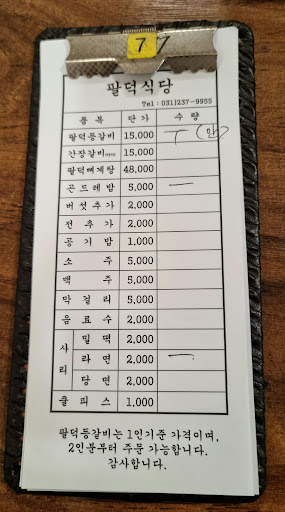 77
팔덕식당
Tel : 031)237-9955
품 목 단 가 수 량
팔덕등갈비 15,000 T (안)
간장갈비 15,000
팔덕뼈께탕 48,000
곤드레밥 5,000 一
버섯추가 2,000
전 추 가 2,000
공 기 밥 1,000
소 주 5,000
맥 주 5,000
막 걸 리 5,000
음 료 수 2,000
사리 밀 떡 2,000
라 면 2,000 一
당 면 2,000
쿨 피 스 1,000
팔덕등갈비는 1인기준 가격이며,
2인분부터 주문 가능합니다.
감사합니다.